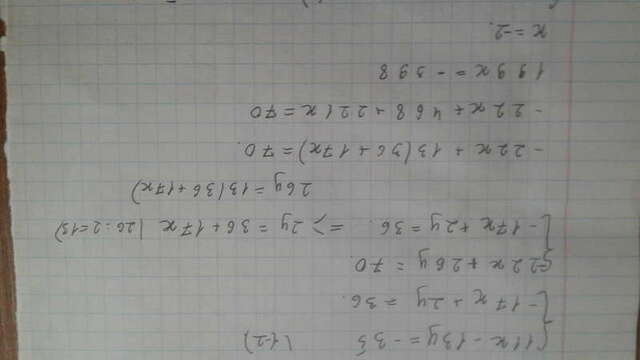 { 11x - 13y = -35 | (-2)
{ -17x + 2y = 36.
{ -22x + 26y = 70
{ -17x + 2y = 36. => 2y = 36 + 17x (26:2=13)
26y = 13(36 + 17x)
-22x + 13(36 + 17x) = 70.
-22x + 468 + 221x = 70
199x = -398
x = -2.